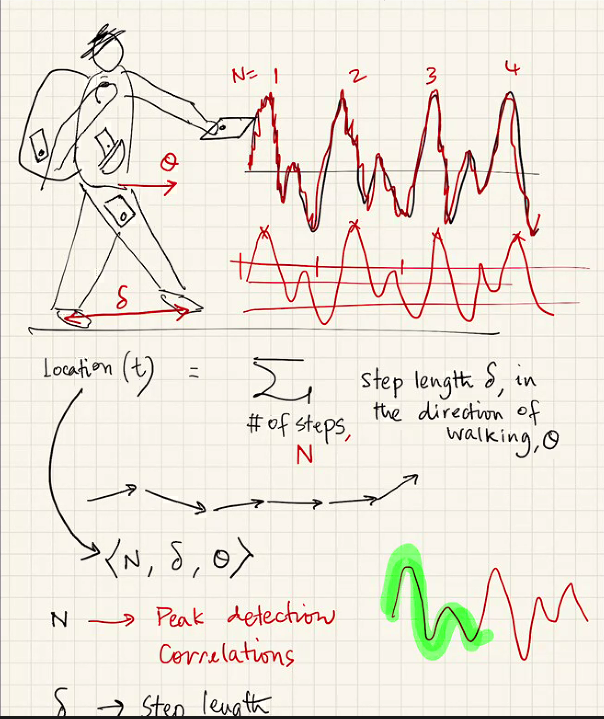 N= 1 2 3 4
θ
δ
Location (t) = Σ Step length δ, in
the direction of
walking, θ
# of steps,
N
⟨N, δ, θ⟩
N → Peak detection
Correlations
δ → Step length